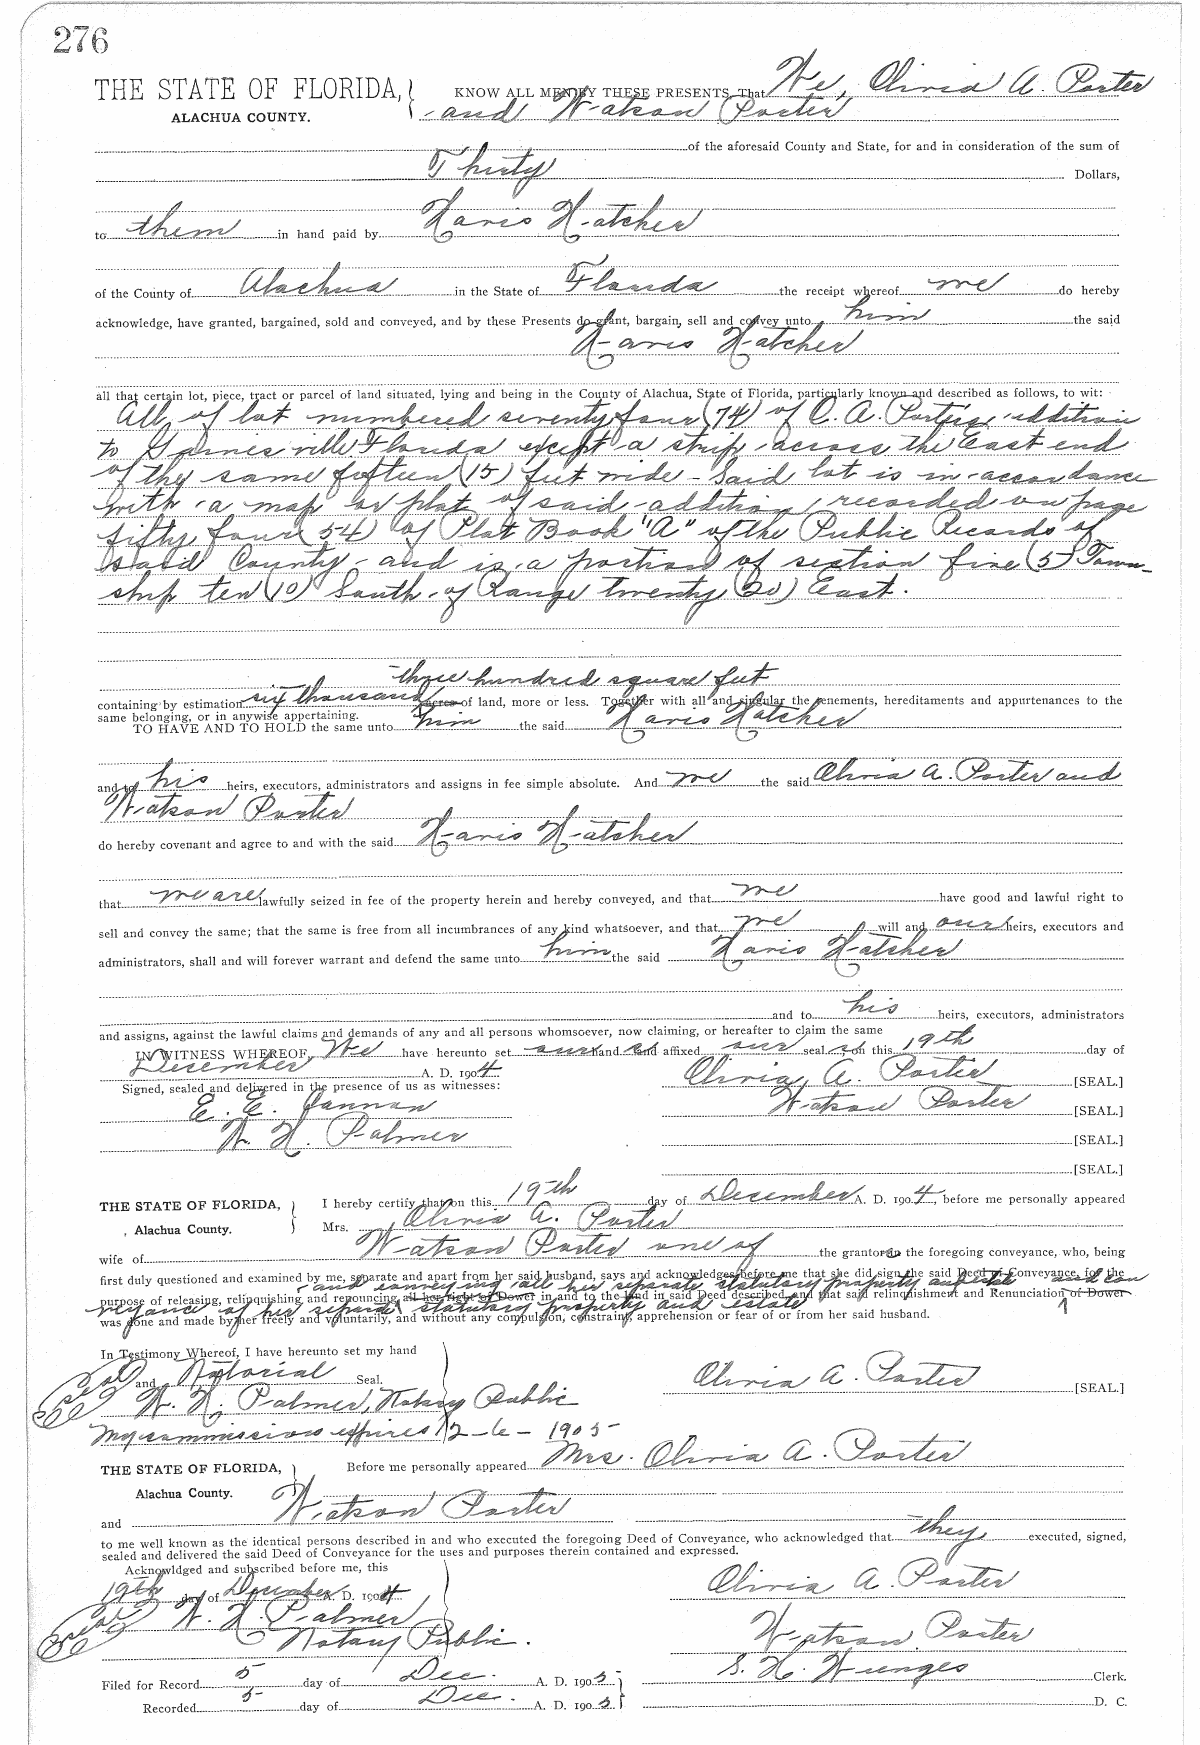 276
THE STATE OF FLORIDA, KNOW ALL MEN BY THESE PRESENTS, That We, Olivia A. Porter
ALACHUA COUNTY. and Watson Porter
of the aforesaid County and State, for and in consideration of the sum of
Thirty Dollars,
to them in hand paid by Haris Hatcher
of the County of Alachua in the State of Florida the receipt whereof we do hereby
acknowledge, have granted, bargained, sold and conveyed, and by these Presents do grant, bargain, sell and convey unto him the said
Haris Hatcher
all that certain lot, piece, tract or parcel of land situated, lying and being in the County of Alachua, State of Florida, particularly known and described as follows, to wit:
All of lot numbered seventy four (74) of O. A. Porters addition
to Gainesville Florida except a strip across the East end
of the same fifteen (15) feet wide - Said lot is in accordance
with a map or plat of said addition recorded on page
fifty four (54) of Plat Book "A" of the Public Records of
said County - and is a portion of section five (5) Town-
ship ten (10) South of Range twenty (20) East.
three hundred square feet
containing by estimation six thousand acres of land, more or less. Together with all and singular the tenements, hereditaments and appurtenances to the
same belonging, or in anywise appertaining.
TO HAVE AND TO HOLD the same unto him the said Haris Hatcher
and to his heirs, executors, administrators and assigns in fee simple absolute. And we the said Olivia A. Porter and
Watson Porter
do hereby covenant and agree to and with the said Haris Hatcher
that we are lawfully seized in fee of the property herein and hereby conveyed, and that we have good and lawful right to
sell and convey the same; that the same is free from all incumbrances of any kind whatsoever, and that we will and our heirs, executors and
administrators, shall and will forever warrant and defend the same unto him the said Haris Hatcher
and to his heirs, executors, administrators
and assigns, against the lawful claims and demands of any and all persons whomsoever, now claiming, or hereafter to claim the same
IN WITNESS WHEREOF, We have hereunto set our hand s and affixed our seal s, on this 19th day of
December A. D. 1904 Olivia A. Porter [SEAL.]
Signed, sealed and delivered in the presence of us as witnesses:
E. E. Watson Porter [SEAL.]
W. N. Palmer [SEAL.]
[SEAL.]
THE STATE OF FLORIDA, I hereby certify that on this 19th day of December A. D. 1904, before me personally appeared
Alachua County. Mrs. Olivia A. Porter
wife of Watson Porter one of the grantors in the foregoing conveyance, who, being
first duly questioned and examined by me, separate and apart from her said husband, says and acknowledges before me that she did sign the said Deed of Conveyance, for the
and conveying all her separate statutory property and estate and con
purpose of releasing, relinquishing and renouncing all her right of Dower in and to the land in said Deed described and that said relinquishment and Renunciation of Dower
veyance of her separate statutory property and estate
was done and made by her freely and voluntarily, and without any compulsion, constraint, apprehension or fear of or from her said husband.
In Testimony Whereof, I have hereunto set my hand
and Notarial Seal. Olivia A. Porter [SEAL.]
Seal W. N. Palmer, Notary Public
My commission expires 12-6-1905
THE STATE OF FLORIDA, Before me personally appeared Mrs. Olivia A. Porter
Alachua County.
and Watson Porter
to me well known as the identical persons described in and who executed the foregoing Deed of Conveyance, who acknowledged that they executed, signed,
sealed and delivered the said Deed of Conveyance for the uses and purposes therein contained and expressed.
Acknowldged and subscribed before me, this
19th day of December A. D. 1904 Olivia A. Porter
Seal W. N. Palmer
Notary Public. Watson Porter
Filed for Record 5 day of Dec. A. D. 1905 S. H. Wienges Clerk.
Recorded 5 day of Dec. A. D. 1905 D. C.